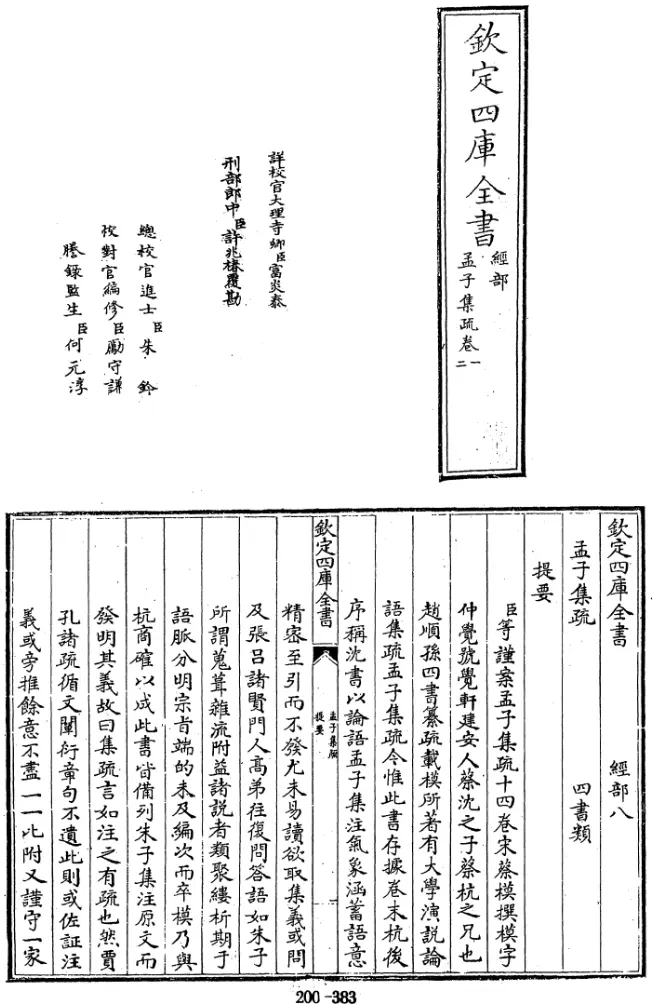 欽定四庫全書
經部
孟子集疏卷一
二
詳校官大理寺卿臣富炎泰
刑部郎中臣許兆椿覆勘
總校官進士臣朱鈐
校對官編修臣勵守謙
謄錄監生臣何元淳
欽定四庫全書 經部八
孟子集疏 四書類
提要
臣等謹案孟子集疏十四卷宋蔡模撰模字
仲覺號覺軒建安人蔡沈之子蔡杭之兄也
趙順孫四書纂疏載模所著有大學演說論
語集疏孟子集疏今惟此書存據卷末杭後
序稱沈書以論語孟子集注氣象涵蓄語意
欽定四庫全書
孟子集疏
提要
一
精密至引而不發尤未易讀欲取集義或問
及張呂諸賢門人高弟往復問答語如朱子
所謂蒐葺雜流附益諸說者類聚縷析期于
語脈分明宗旨端的未及編次而卒模乃與
杭商確以成此書皆備列朱子集注原文而
發明其義故曰集疏言如注之有疏也然賈
孔諸疏循文闡衍章句不遺此則或佐証注
義或旁推餘意不盡一一比附又謹守一家
200-383